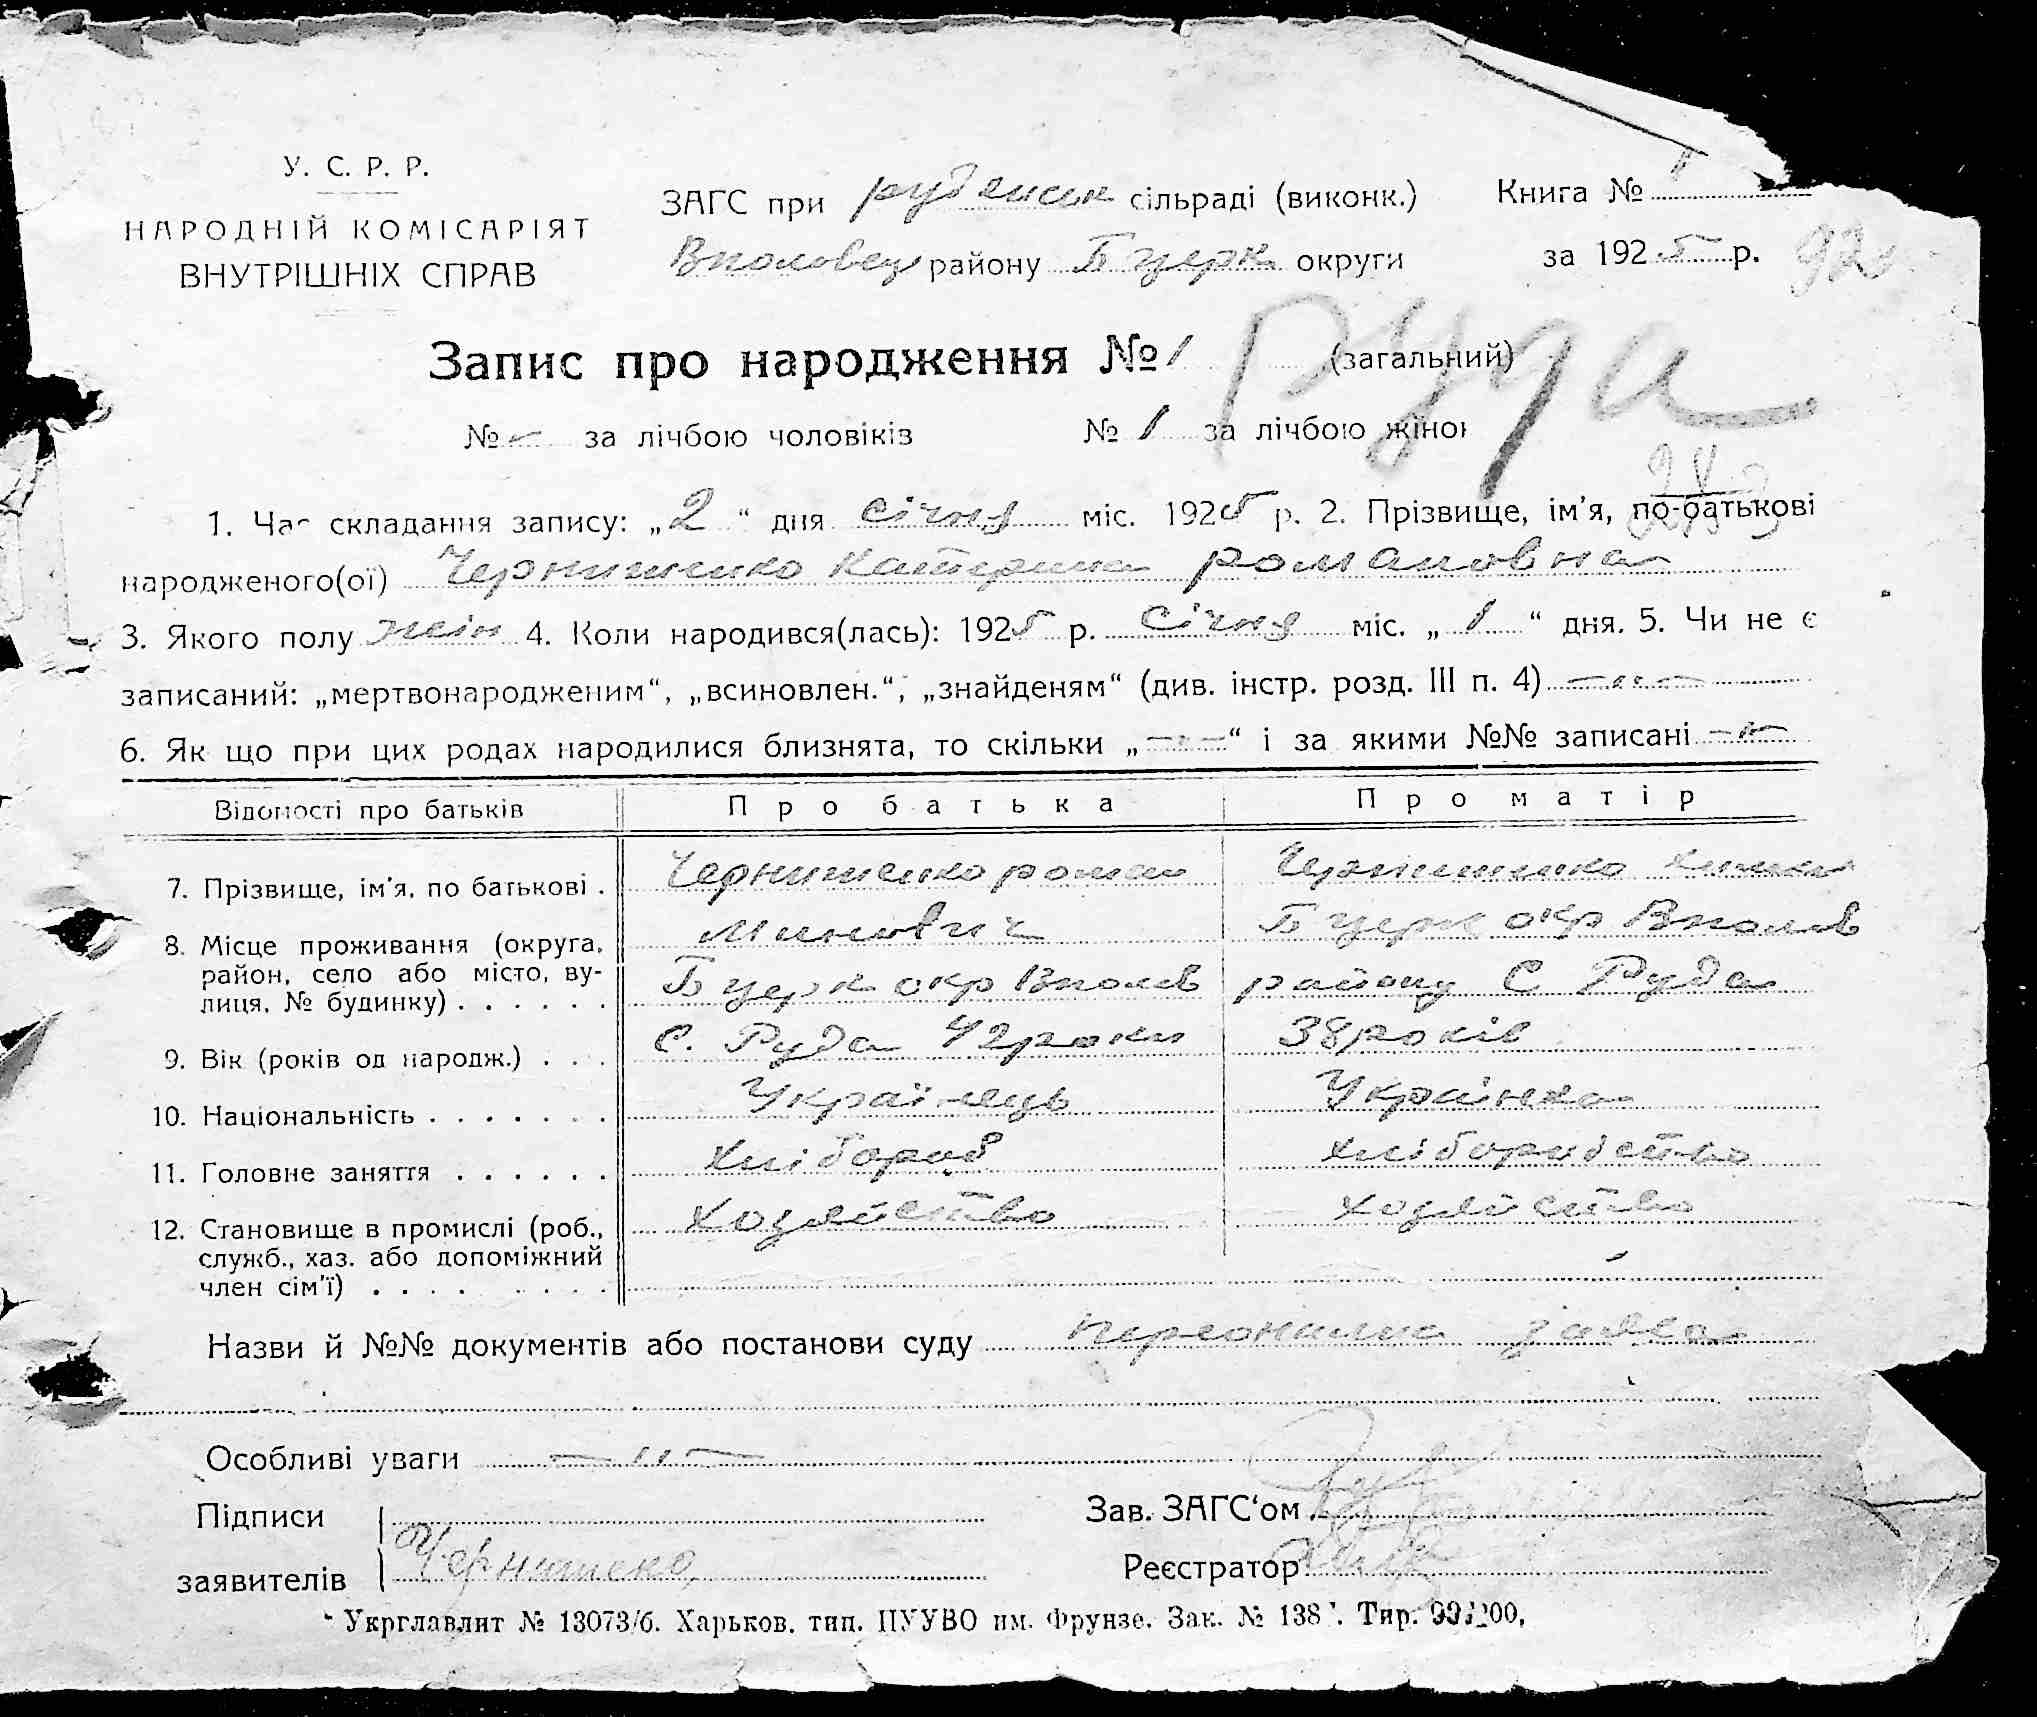 У. С. Р. Р.
НАРОДНІЙ КОМІСАРІЯТ
ВНУТРІШНІХ СПРАВ
ЗАГС при руденськ сільраді (виконк.) Книга №
Вполовец району Бцерк округи за 1925 р. 92
Запис про народження № 1 (загальний)
Руда
№ – за лічбою чоловіків № 1 за лічбою жінок
1. Час складання запису: „2“ дня січня міс. 1925 р. 2. Прізвище, ім'я, по-батькові
народженого(ої) Чернишенко Катерина романовна
3. Якого полу жін 4. Коли народився(лась): 1925 р. Січня міс. „1“ дня. 5. Чи не є
записаний: „мертвонародженим“, „всиновлен.“, „знайденям“ (див. інстр. розд. III п. 4) —„—
6. Як що при цих родах народилися близнята, то скільки „—„—“ і за якими №№ записані —„—
Відомості про батьків Про батька Про матір
7. Прізвище, ім'я, по батькові . Чернишенко роман Чернишенко
Минович
8. Місце проживання (округа, район, село або місто, вулиця, № будинку) . . . . . . Бцерк окр Вполов Бцерк окр Вполов
району С Руда
С. Руда
9. Вік (років од народж.) . . . 42роки 38років
10. Національність . . . . . . . Українець Українка
11. Головне заняття . . . . . . Хлібороб хліборобство
12. Становище в промислі (роб., Хозяйство хозяйство
служб., хаз. або допоміжний
член сім'ї) . . . . . . . .
Назви й №№ документів або постанови суду заява
Особливі уваги —„—
Підписи Зав. ЗАГС‘ом
заявителів Чернишенко Реєстратор
Укрглавлит № 13073/б. Харьков. тип. ПУУВО им. Фрунзе. Зак. № 138 . Тир.